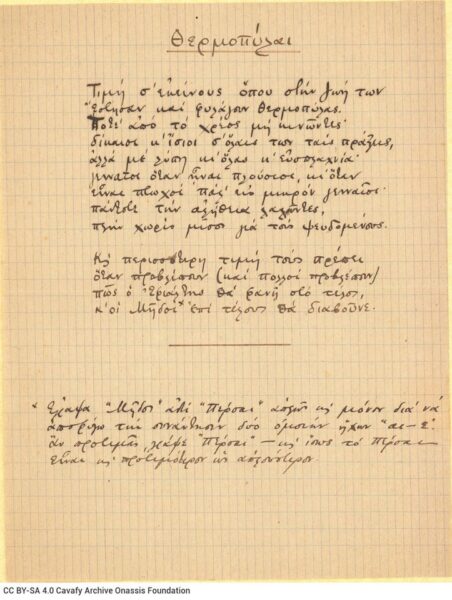 Θερμοπύλαι
Τιμή σ' εκείνους όπου στην ζωή των
ώρισαν και φυλάγουν Θερμοπύλας.
Ποτέ από το χρέος μη κινώντες·
δίκαιοι κ' ίσιοι σ' όλαις των ταις πράξεις,
αλλά με λύπη κι' όλας κ' ευσπλαχνία·
γενναίοι όταν ήναι πλούσιοι, κι' όταν
είναι πτωχοί πάλ' εις μικρόν γενναίοι·
πάντοτε την αλήθεια λαλώντες,
πλην χωρίς μίσος για τους ψευδομένους.
Και περισσότερη τιμή τούς πρέπει
όταν προβλέπουν (και πολλοί προβλέπουν)
πώς ο Εφιάλτης θα φανή στο τέλος,
κ' οι Μήδοι* επί τέλους θα διαβούνε.
* Έγραψα "Μήδοι" αντί "Πέρσαι" απλώς και μόνον διά να
αποφύγω την συνάντησιν δύο ομοίων ήχων "αι — ε"
αν προτιμάς γράψε "Πέρσαι" — και ίσως το Πέρσαι
είναι και προτιμότερον ως απλούστερον.
CC BY-SA 4.0 Cavafy Archive Onassis Foundation